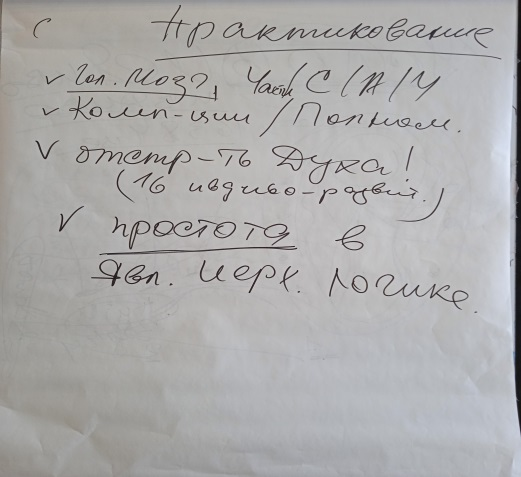 Практикование
✓ Гол. Мозг, Части С/А/Ч
✓ Комп-ции / Полном.
✓ отстр-ть Духа!
(16 ивдиво-развит.)
✓ простота в
Явл. Иерх. Логике.